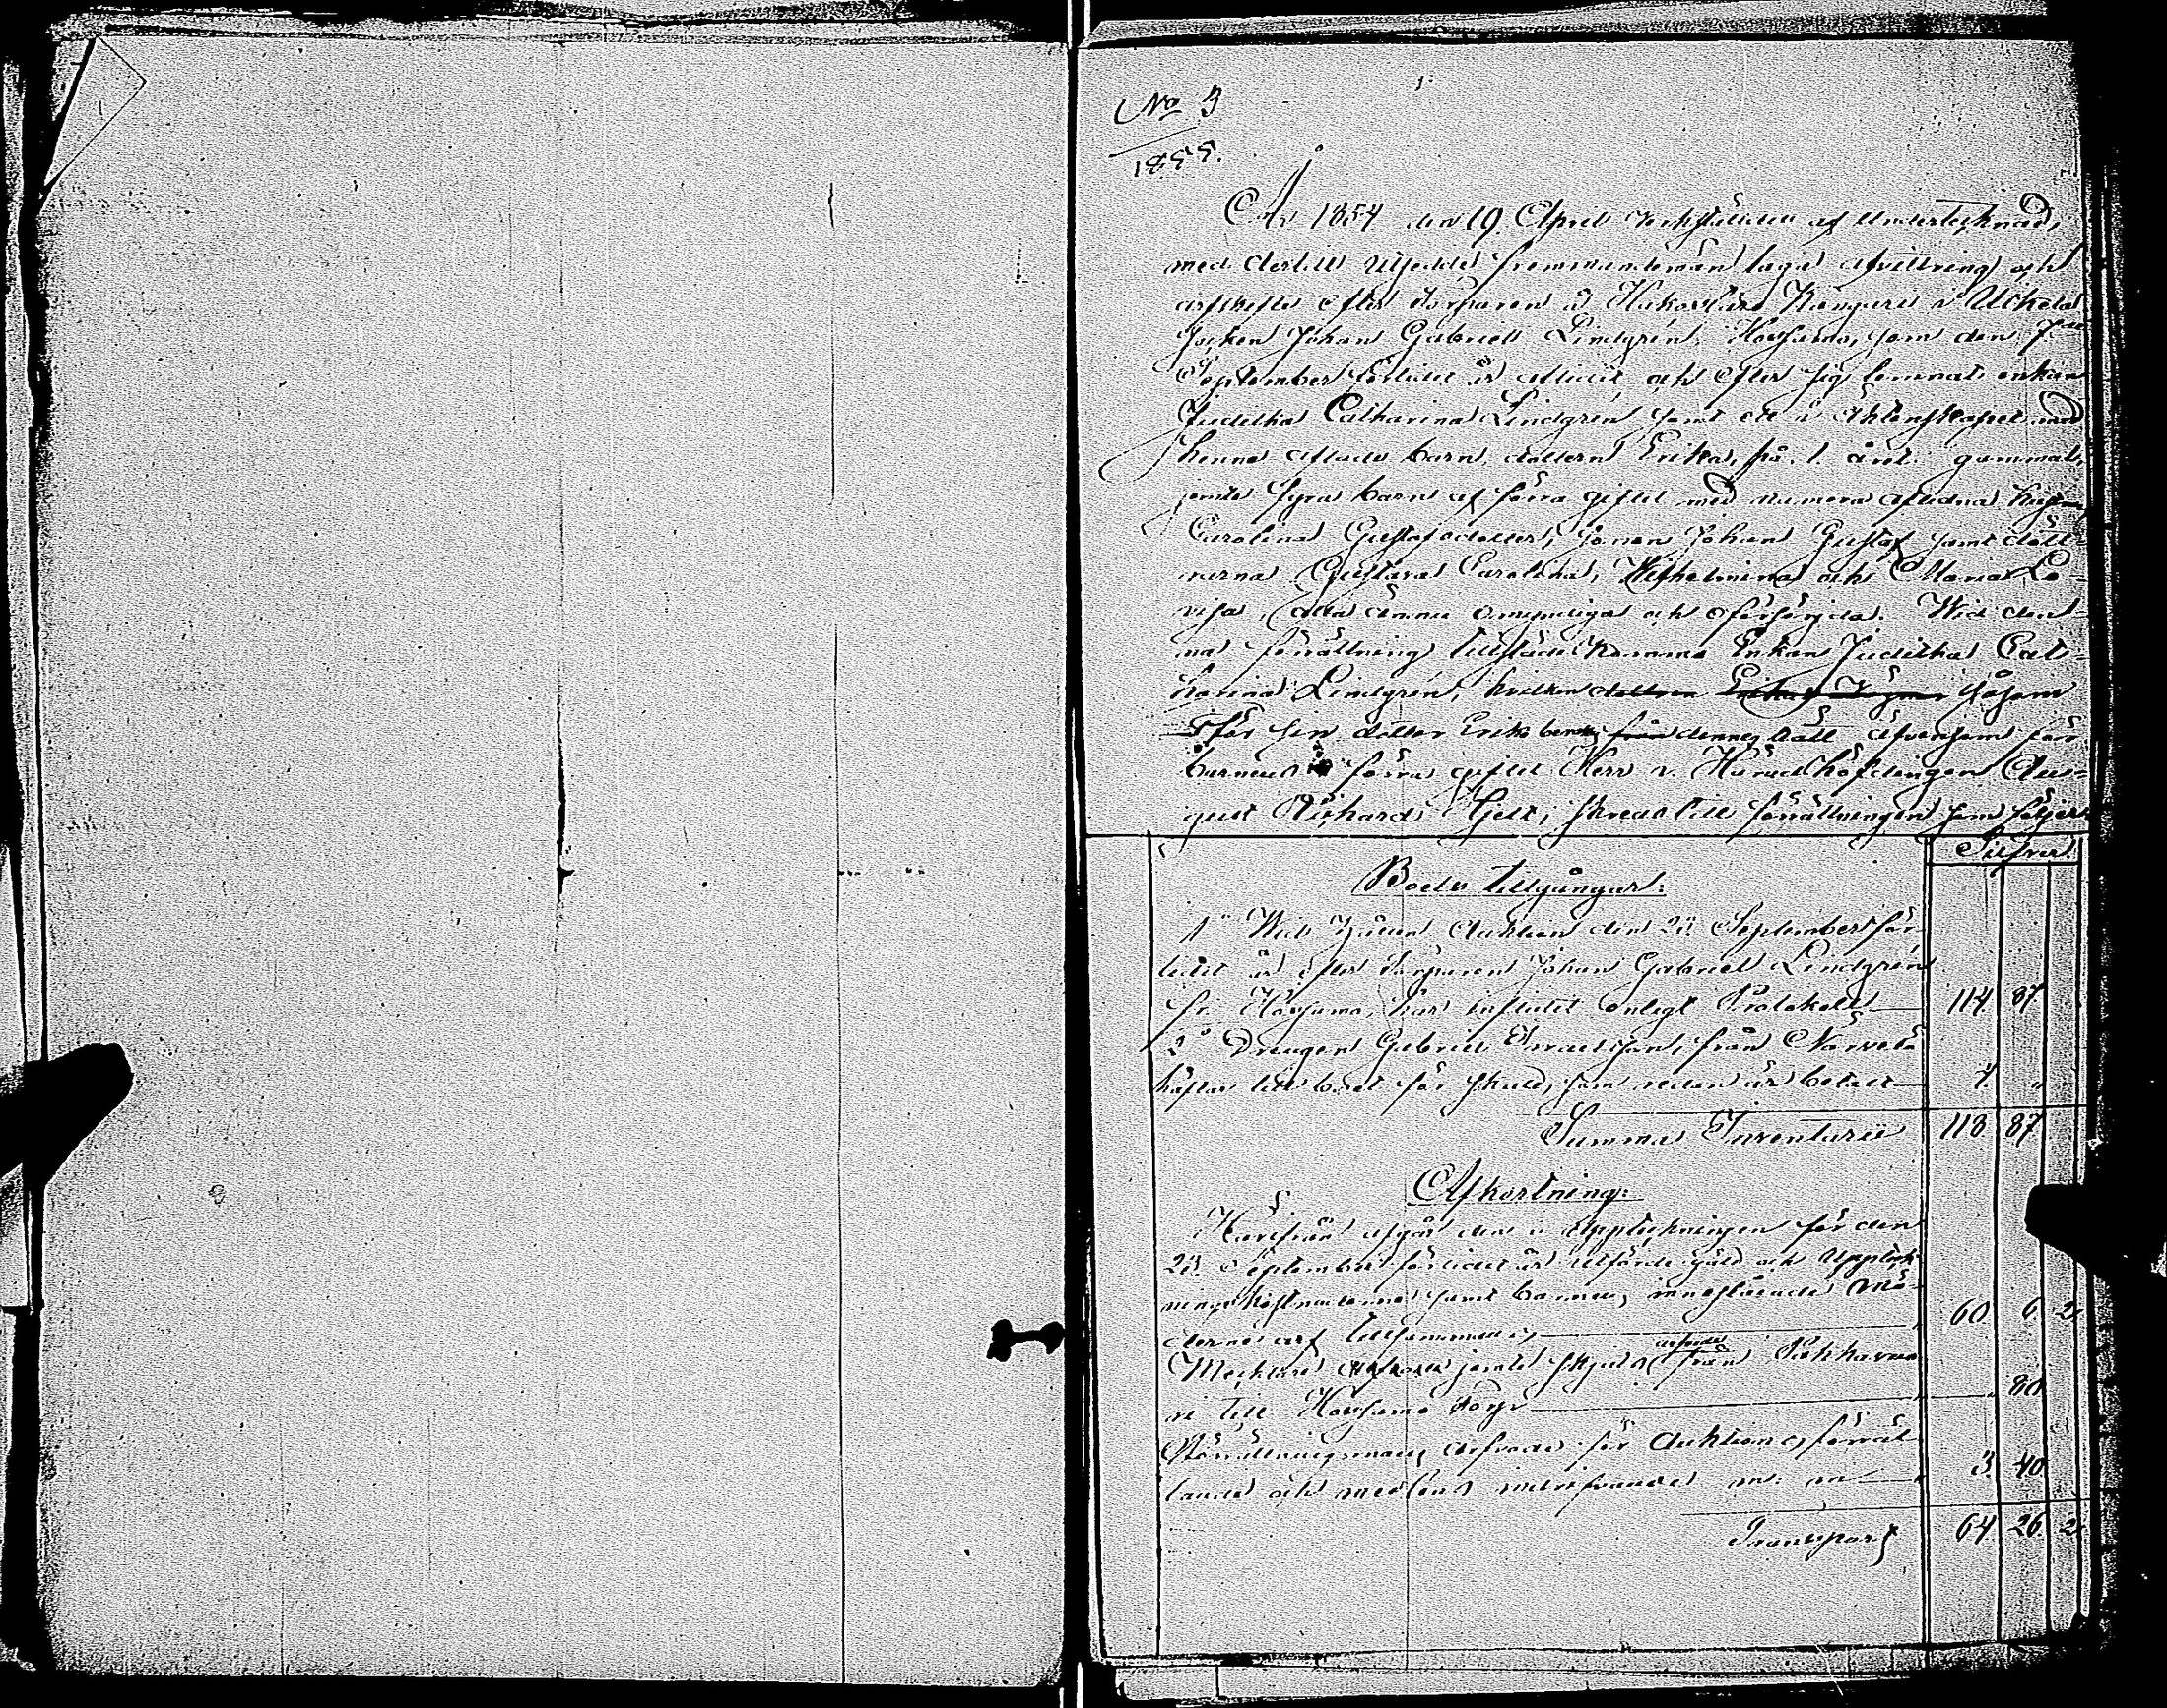 No 3
1855.
År 1854 den 19 April verkställdes af undertecknad,
med dertill utsedde fremmande män laga afvittring och
arfskifte efter Torparen å Hukos lare Kangare i Urjala
Socken Johan Gabriel Lindgrén, Koujamo, som den 7de
September förlidit år aflidit och efter sig lemnat enkan
Juditha Catharina Lindgrén samt ett i äktenskapet med
henne aflade barn, dottern Erika, på 1. året gammal,
jemte fyra barn af förra giftet med numera aflidna hustru
Carolina Gustafsdotter, sonen Johan Gustaf samt dött-
rarna Gustava Carolina, Wilhelmina och Maria Lo-
visa, alla ännu omyndiga och oförsörjda. Wid den-
na förrättning tillstädes komme Enkan Juditha Cat-
harina Lindgrén, hvilken dottren såsom
för sin dotter Erika från dennes håll äfvensom för
barnen i förra giftet Herr v. Häradshöfdingen Au-
gust Richard Hjelt, skreds till förrättningen som följer:
Silfver.
Boets tillgångar:
1o Wid hållen Auktion den 28 September för-
lidit år efter Torparen Johan Gabriel Lindgrén
fr. Koujamo, har influtit enligt Protokoll 114 87.
2o Drengen Gabriel Israelsson, från Narvelä
häftar till boet för skuld, som redan är betalt 4. "
Summa Inventarii 118 87
Afkortning:
Härifrån afgår den i Uppteckningen för den
28 September förlidit år utförde gäld och Uppteck-
nings kostnaderne samt barnens innestående Mö-
derne arf tillsammans 60 6. 2
Mecklare arfvode jemte skjuts från
arfvode
ri till Koujamo Torp 80
Förrättningsmans arfvode för Auktions förrät-
tande och medlens indrifvande m: m 3. 40
Transport 64 26 2